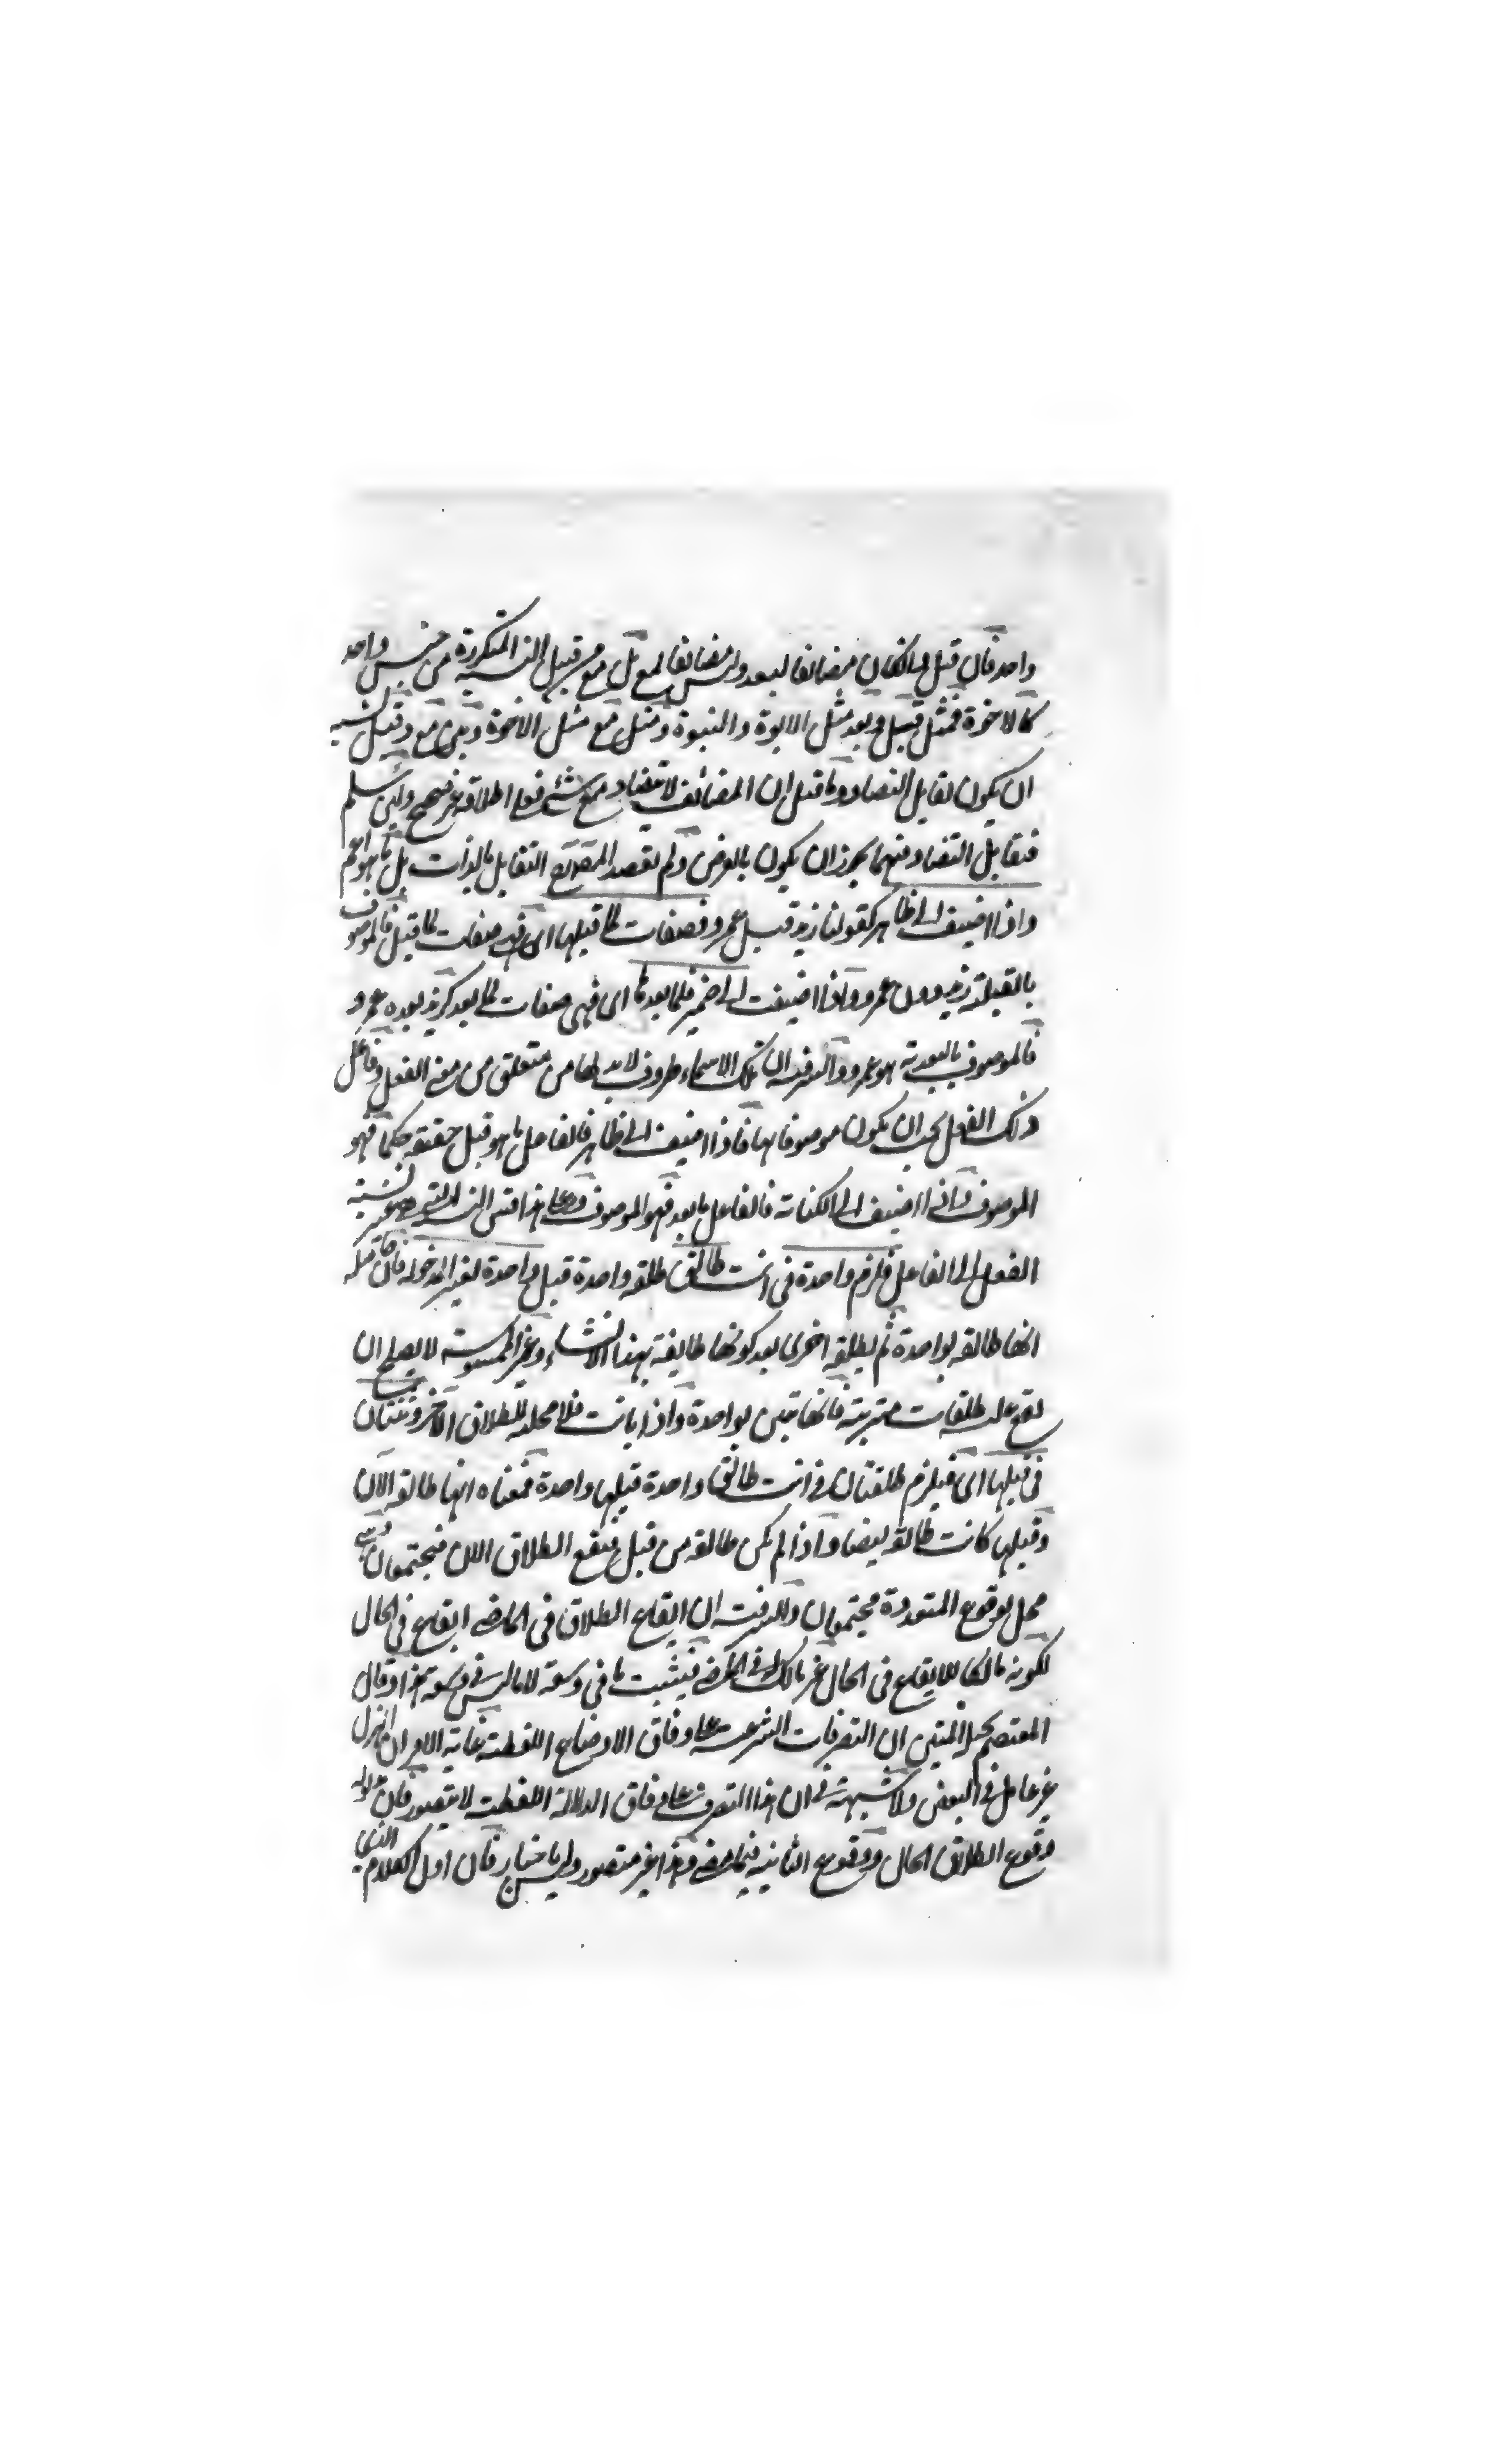 واحد فان قبل وان كان مضائفا لبعد وليس مضائفا لمع بل مع من قبيل النسبة المتكررة من جنس واحد
كالاخوة فمثل قبل وبعد مثل الابوة والبنوة ومثل مع مثل الاخوة وبين مع وقبل يشبه
ان يكون تقابل التضاد وما قيل ان المضائف لا يتضاد مع شئ فعلى اطلاقه غير صحيح ولئن سلم
فتقابل التضاد فيهما يجوز ان يكون بالعرض ولم يقصد المصنف التقابل بالذات بل ما هو اعم
واذا اضيف الى ظاهر كقولنا زيد قبل عمرو فصفات لما قبلها اى فهى صفات لما قبل فالموصوف
بالقبلية زيد دون عمرو واذا اضيفت الى ضمير فلما بعدها اى فهى صفات لما بعد كزيد بعده عمرو
فالموصوف بالبعدية هو عمرو والسر فيه ان تلك الاسماء ظروف لا بد لها من متعلق من معنى الفعل وفاعل
ذلك الفعل يجب ان يكون موصوفا بها فاذا اضيف الى ظاهر فالفاعل ما هو قبل حقيقة او حكما فهو
الموصوف واذا اضيف الى الكناية فالفاعل ما بعد فهو الموصوف وعلى هذا قس النسبة التى هى غير نسبة
الفعل الى الفاعل فلزم واحدة فى انت طالق طلقة واحدة قبل واحدة لغير المدخولة فان معناه
انها طالقة بواحدة ثم يطلقه اخرى بعد كونها طالقة بهذا الانشاء وغير الممسوسة لا يصلح ان
يقع عليه طلقات مترتبة فانها تبين بواحدة واذا بانت فلا محلية للطلاق الآخر وثنتان
فى قبلها اى فيلزم طلقتان فى انت طالق واحدة قبلها واحدة فمعناه انها طالقة الآن
وقبلها كانت طالقة ايضا واذا لم يكن طالقة من قبل فيقع الطلاق الان فيجتمعان وهى
محل لوقوع المتعددة مجتمعان والسر فيه ان ايقاع الطلاق فى الماضى ايقاع فى الحال
لكونه مالكا للايقاع فى الحال غير مالك له فى الماضى فيثبت ما فى وسعه لا ما ليس فى وسعه هذا وقال
المعتصم بحبل المتين ان التصرفات الشرعية على وفاق الاوضاع اللفظية غاية الامر ان الهزل
غير عامل فى البعض ولا شبهة فى ان هذا التصرف على وفاق الدلالة اللفظية لا يتصور فان مدلوله
وقوع الطلاق الحال ووقوع الثانية فيما مضى وهذا غير متصور وليس باختيار فان اول الكلام الذى